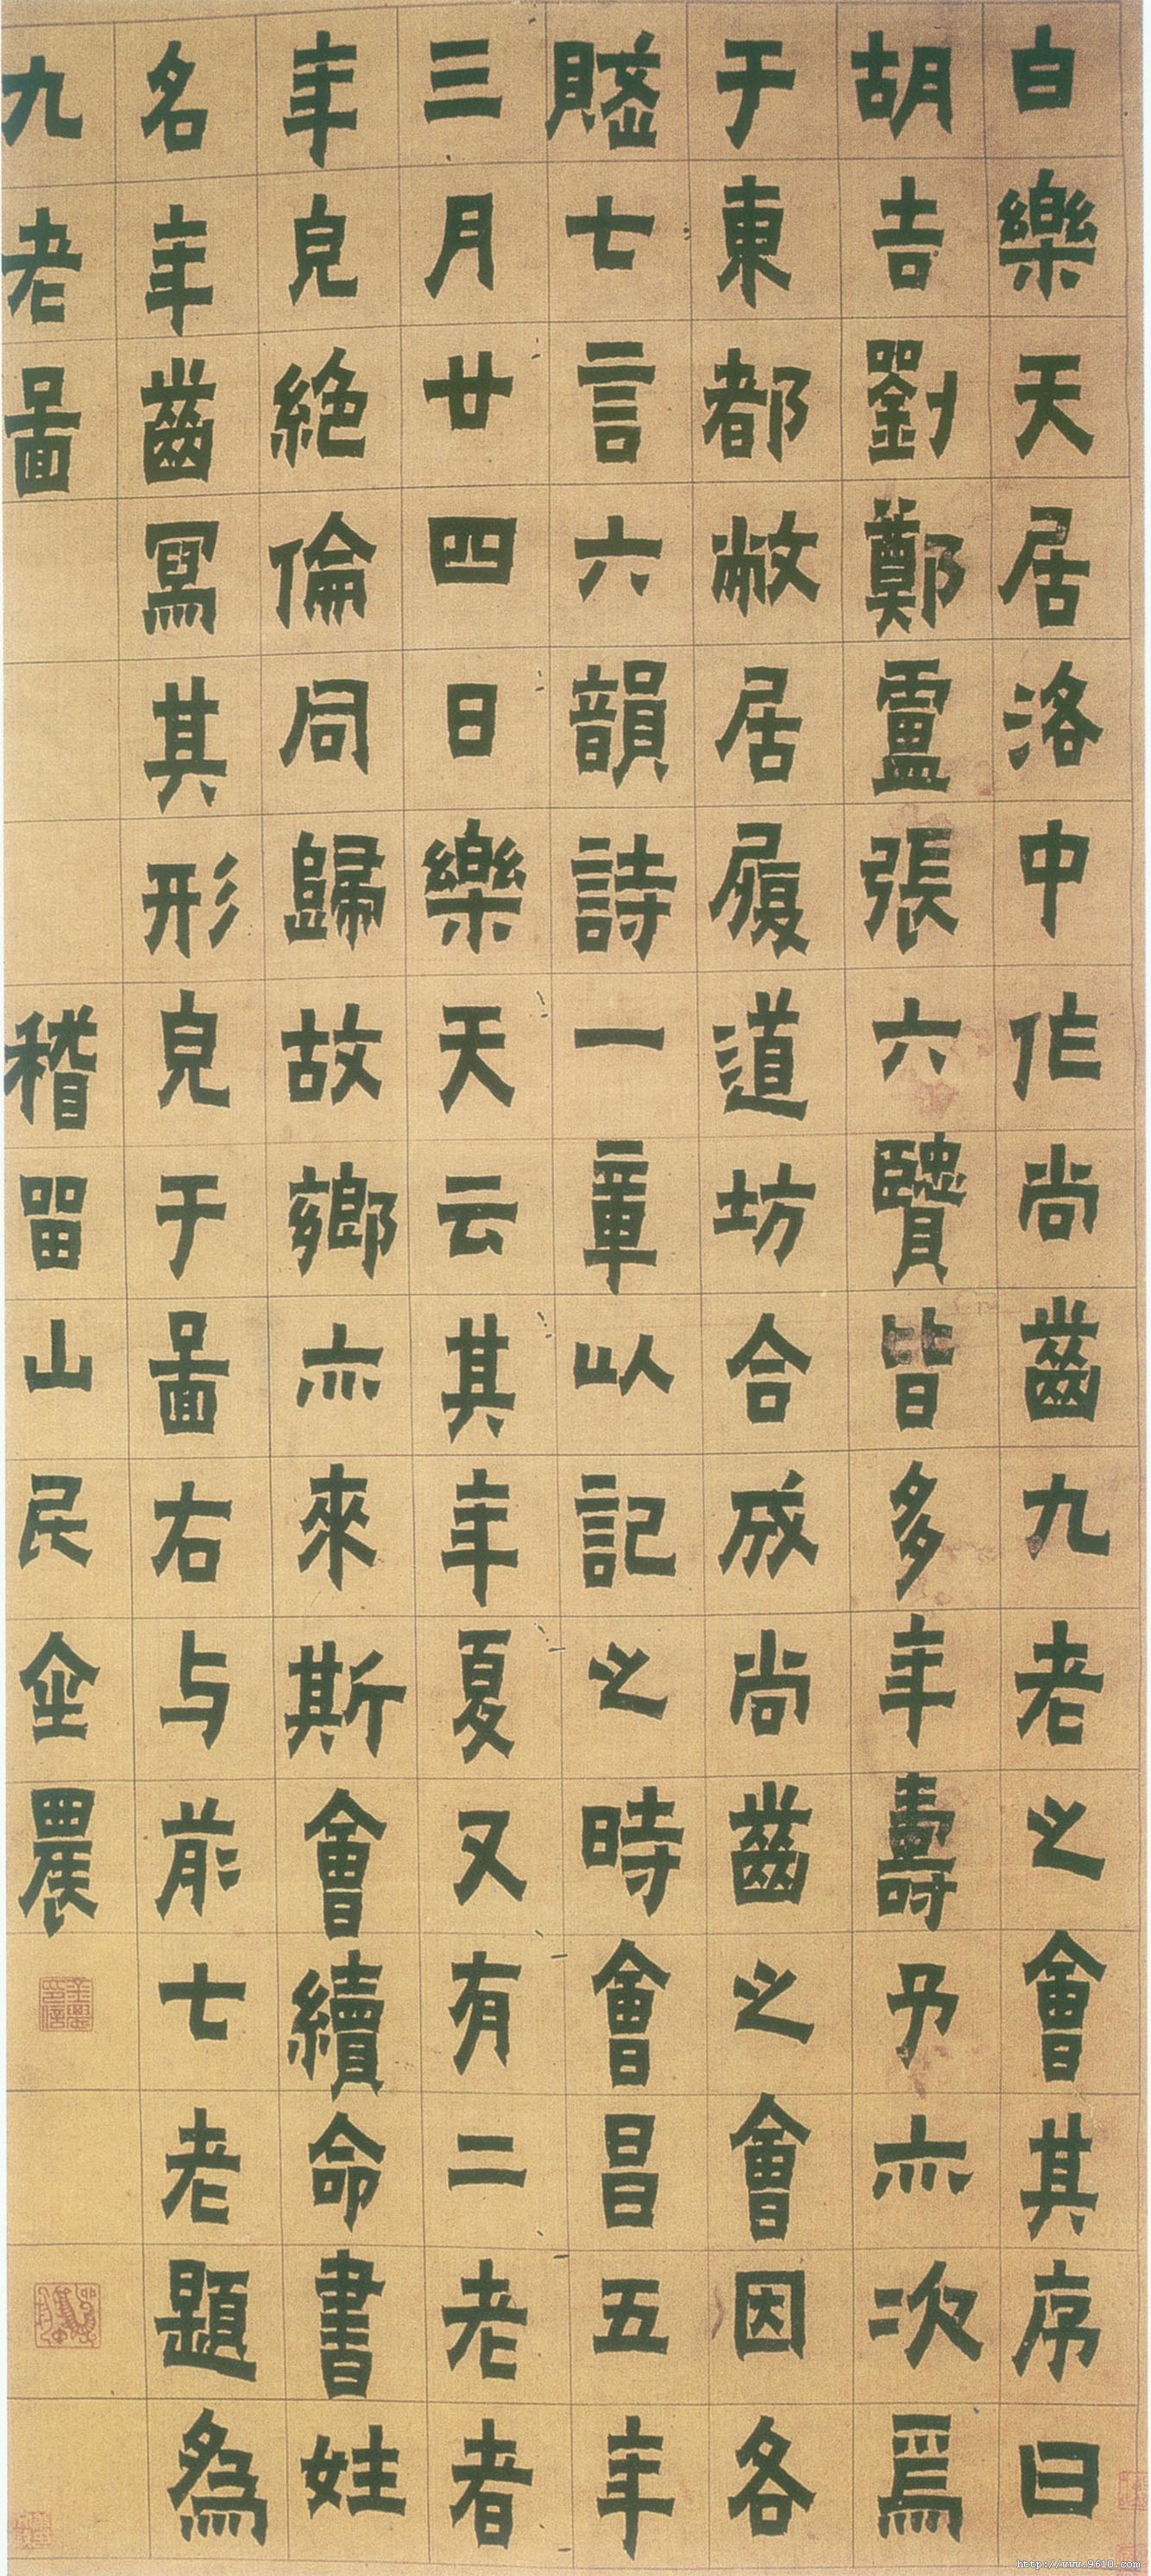 白樂天居洛中作尚齒九老之會其序曰
胡吉劉鄭盧張六賢皆多年壽予亦次焉
于東都敝居履道坊合成尚齒之會因各
賦七言六韻詩一章以記之時會昌五年
三月廿四日樂天云其年夏又有二老者
年皃絕倫同歸故鄉亦來斯會續命書姓
名年齒寫其形皃于圖右与前七老題為
九老圖 稽留山民金農
金農印信
http://www.9610.com